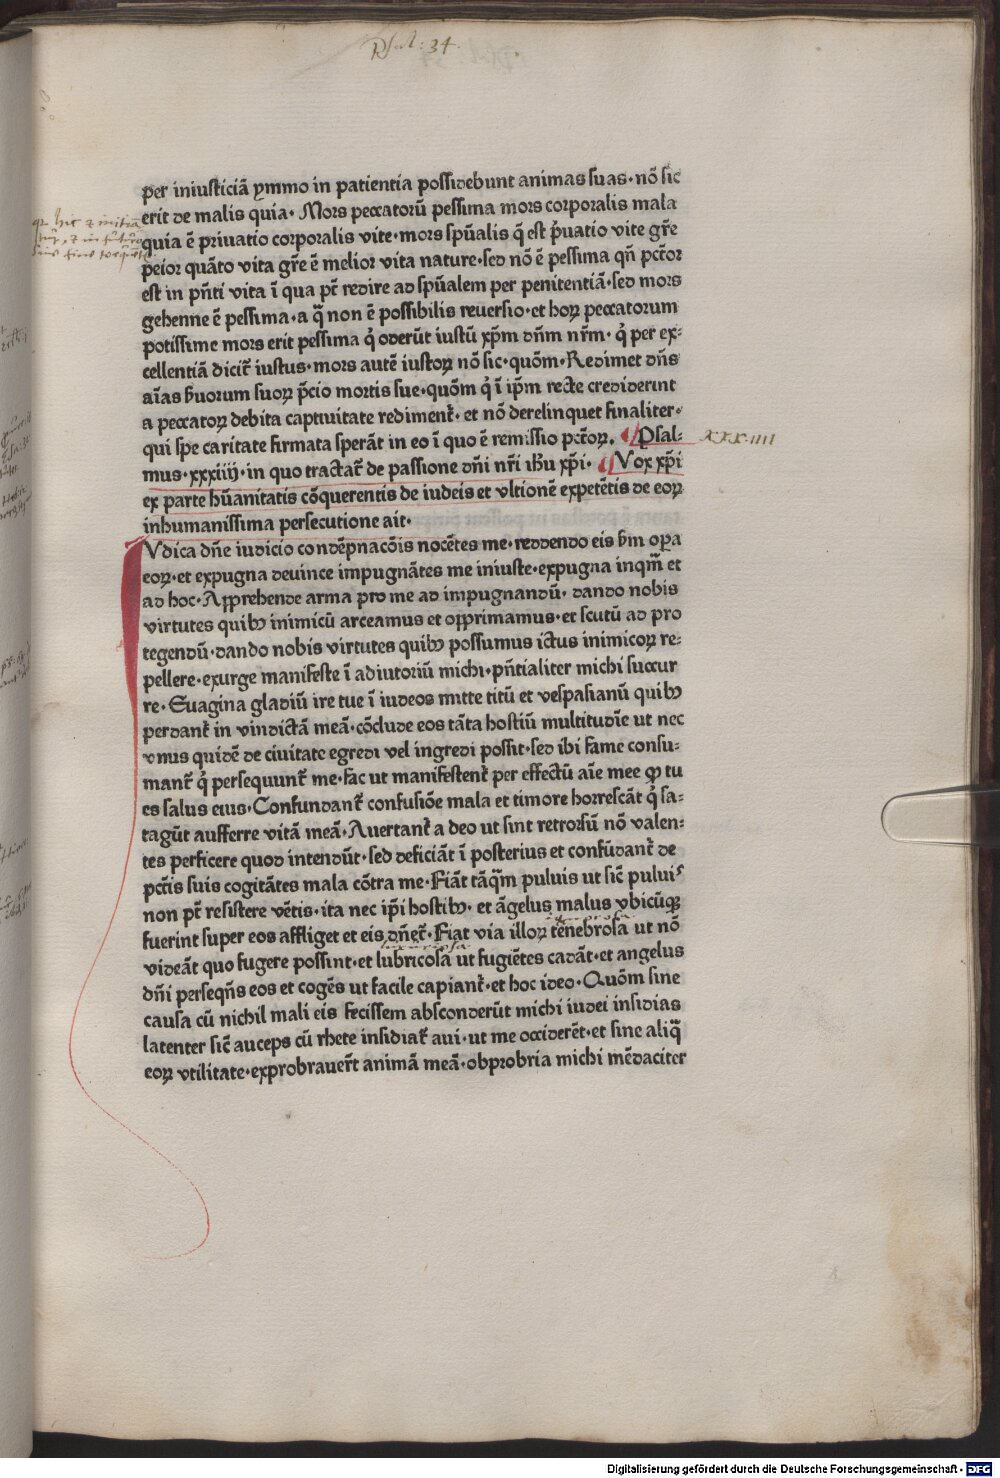 Psal: 34.
per iniusticiã ymmo in patientia possidebunt animas suas·nõ sic
erit de malis quia·Mors peccatorũ pessima mors corporalis mala
quia ẽ priuatio corporalis vite·mors spũalis q̃ est p̃uatio vite gr̃e
peior quãto vita gr̃e ẽ melior vita nature·sed nõ ẽ pessima qñ pct̃or
est in pñti vita ĩ qua pt̃ redire ad spũalem per penitentiã·sed mors
gehenne ẽ pessima·a q̃ non ẽ possibilis reuersio·et horꝝ peccatorum
potissime mors erit pessima q̇ oderũt iustũ xp̃m dñm nr̃m·q̇ per ex:
cellentiã dicit̃ iustus·mors autẽ iustorꝝ nõ sic·quõm·Redimet dñs
aĩas ẜuorum suorꝝ p̃cio mortis sue·quõm q̇ ĩ ip̃m recte crediderint
a peccatorꝝ debita captiuitate rediment̃·et nõ derelinquet finaliter·
qui spe caritate firmata sperãt in eo ĩ quo ẽ remissio pct̃orꝝ. Psal: XXXIIII
mus·xxxiiij·in quo tractat̃ de passione dñi nr̃i ihũ xp̃i· Vox xp̃i
ex parte hũanitatis cõquerentis de iudeis et vltionẽ expetẽtis de eorꝝ
inhumanissima persecutione ait·
Vdica dñe iudicio condẽpnacõis nocẽtes me·reddendo eis ẜm opa
eorꝝ·et expugna deuince impugnãtes me iniuste·expugna inqm̃ et
ad hoc·Apprehende arma pro me ad impugnandũ·dando nobis
virtutes quibꝫ inimicũ arceamus et opprimamus·et scutũ ad pro
tegendũ·dando nobis virtutes quibꝫ possumus ictus inimicorꝝ re:
pellere·exurge manifeste ĩ adiutoriũ michi·pñtialiter michi succur
re·Euagina gladiũ ire tue ĩ iudeos mitte titũ et vespasianũ quibꝫ
perdant̃ in vindictã meã·cõclude eos tãta hostiũ multitudĩe ut nec
vnus quidẽ de ciuitate egredi vel ingredi possit·sed ibi fame consu:
mant̃ q̇ persequunt̃ me·fac ut manifestent̃ per effectũ aĩe mee ꝙ tu
es salus eius·Confundant̃ confusiõe mala et timore horrescãt q̇ sa:
tagũt aufferre vitã meã·Auertant̃ a deo ut sint retrorsũ nõ valen:
tes perficere quod intendũt·sed deficiãt ĩ posterius et confũdant̃ de
pct̃is suis cogitãtes mala cõtra me·Fiãt tãq̃m puluis ut sic̃ puluis
non pt̃ resistere vẽtis·ita nec ip̃i hostibꝫ·et ãgelus malus vbicũqꝫ
fuerint super eos affliget et eis dñet̃·Fiat via illorꝝ tẽnebrosa ut nõ
videãt quo fugere possint·et lubricosa ut fugiẽtes cadãt·et angelus
dñi perseqñs eos et cogẽs ut facile capiant̃·et hoc ideo·Quõm sine
causa cũ nichil mali eis fecissem absconderũt michi iudei insidias
latenter sic̃ auceps cũ rhete insidiat̃ aui·ut me occiderẽt·et sine aliq̃
eorꝝ vtilitate·exprobrauer̃t animã meã·obprobria michi mẽdaciter
Digitalisierung gefördert durch die Deutsche Forschungsgemeinschaft - DFG